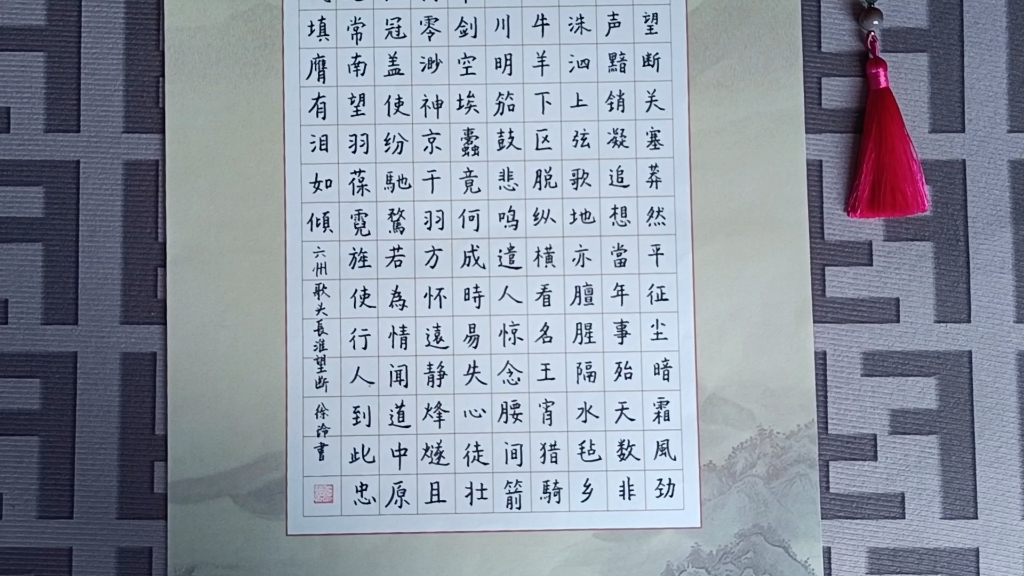 望断关塞莽然平征尘暗霜風劲
声黯销凝追想當年事殆天数非
洙泗上弦歌地亦膻腥隔水毡乡
牛羊下区脱纵横看名王宵猎騎
川明笳鼓悲鸣遣人惊念腰间箭
剑空埃蠹竟何成時易失心徒壮
零渺神京干羽方怀遠静烽燧且
冠盖使纷馳騖若為情闻道中原
常南望羽葆霓旌使行人到此忠
填膺有泪如傾
六州歌头長淮望断 徐書